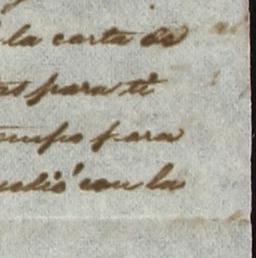 la carta de
para ti
tiempo para
con la